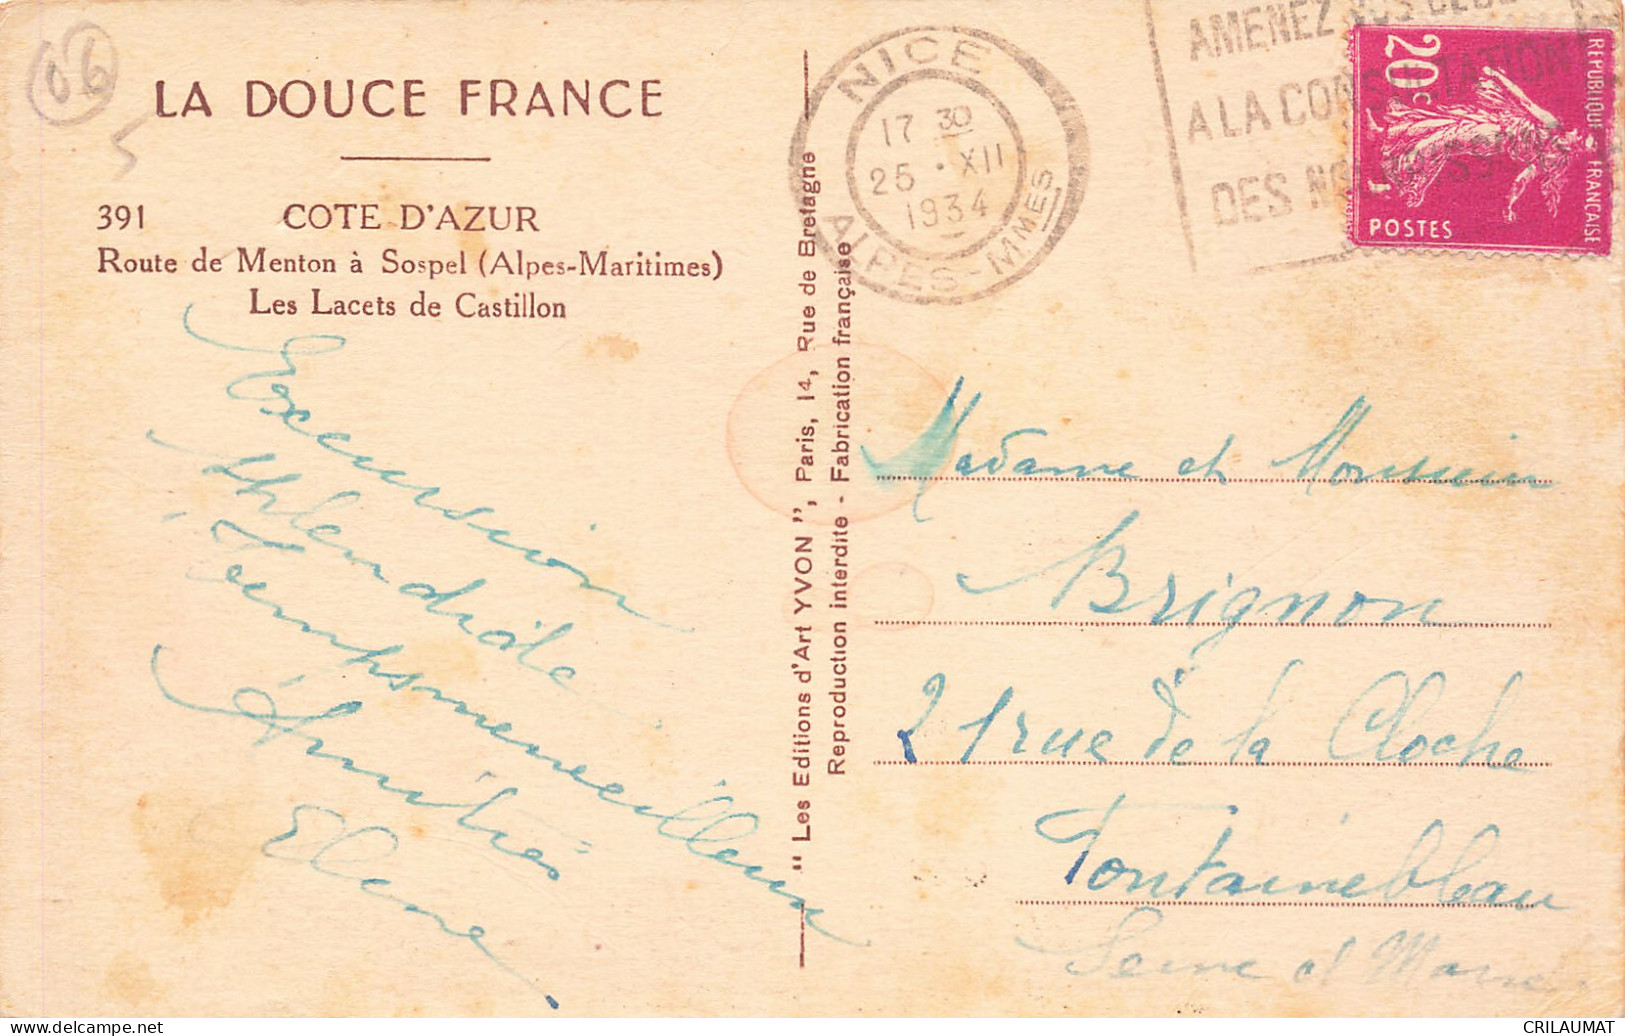 06
5
LA DOUCE FRANCE
391 COTE D'AZUR
Route de Menton à Sospel (Alpes-Maritimes)
Les Lacets de Castillon
Excursion
splendide
Temps merveilleux
Amitiés
"Les Editions d'Art YVON", Paris, 14, Rue de Bretagne
Reproduction interdite - Fabrication française
NICE
17 30
25 · XII
1934
ALPES-MMES
AMENEZ VOS
A LA CONSULTATION
DES NOURRISSONS
REPUBLIQUE FRANÇAISE
20c
POSTES
Madame et Monssieur
Brignon
21 rue de la Cloche
Fontainebleau
Seine et Marne
CRILAUMAT